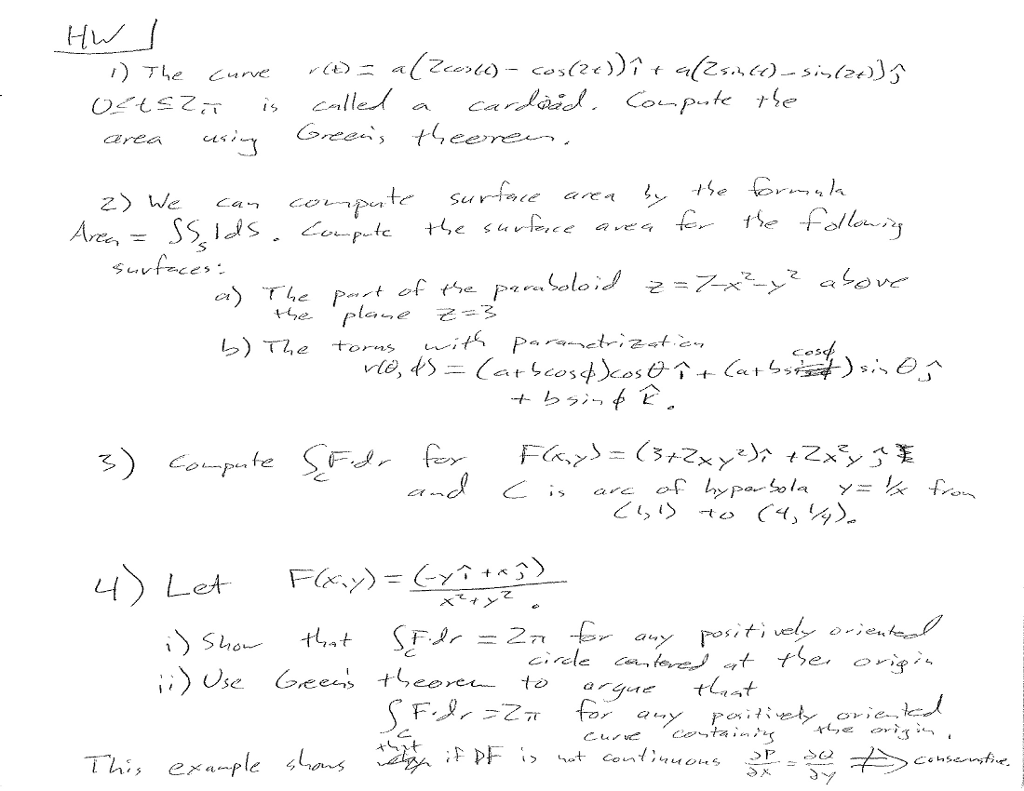 HW 1
1) The curve r(t) = a(2cos(t) - cos(2t))î + a(2sin(t) - sin(2t))ĵ
0≤t≤2π is called a cardioid. Compute the
area using Green's theorem.
2) We can compute surface area by the formula
Area = ∫∫_S 1dS. Compute the surface area for the following
surfaces:
a) The part of the paraboloid z = 7-x²-y² above
the plane z=3
b) The torus with parametrization
r(θ,φ) = (a+bcosφ)cosθ î + (a+b cosφ) sinθ ĵ
+ b sinφ k̂.
3) Compute ∫_C F·dr for F(x,y) = (3+2xy²)î + 2x²y ĵ
and C is arc of hyperbola y = 1/x from
(1,1) to (4, 1/4).
4) Let F(x,y) = (-yî + xĵ) / x²+y².
i) Show that ∫_C F·dr = 2π for any positively oriented
circle centered at the origin
ii) Use Green's theorem to argue that
∫_C F·dr = 2π for any positively oriented
curve containing the origin.
This example shows that if DF is not continuous ∂P/∂x = ∂Q/∂y ⇏ conservative.